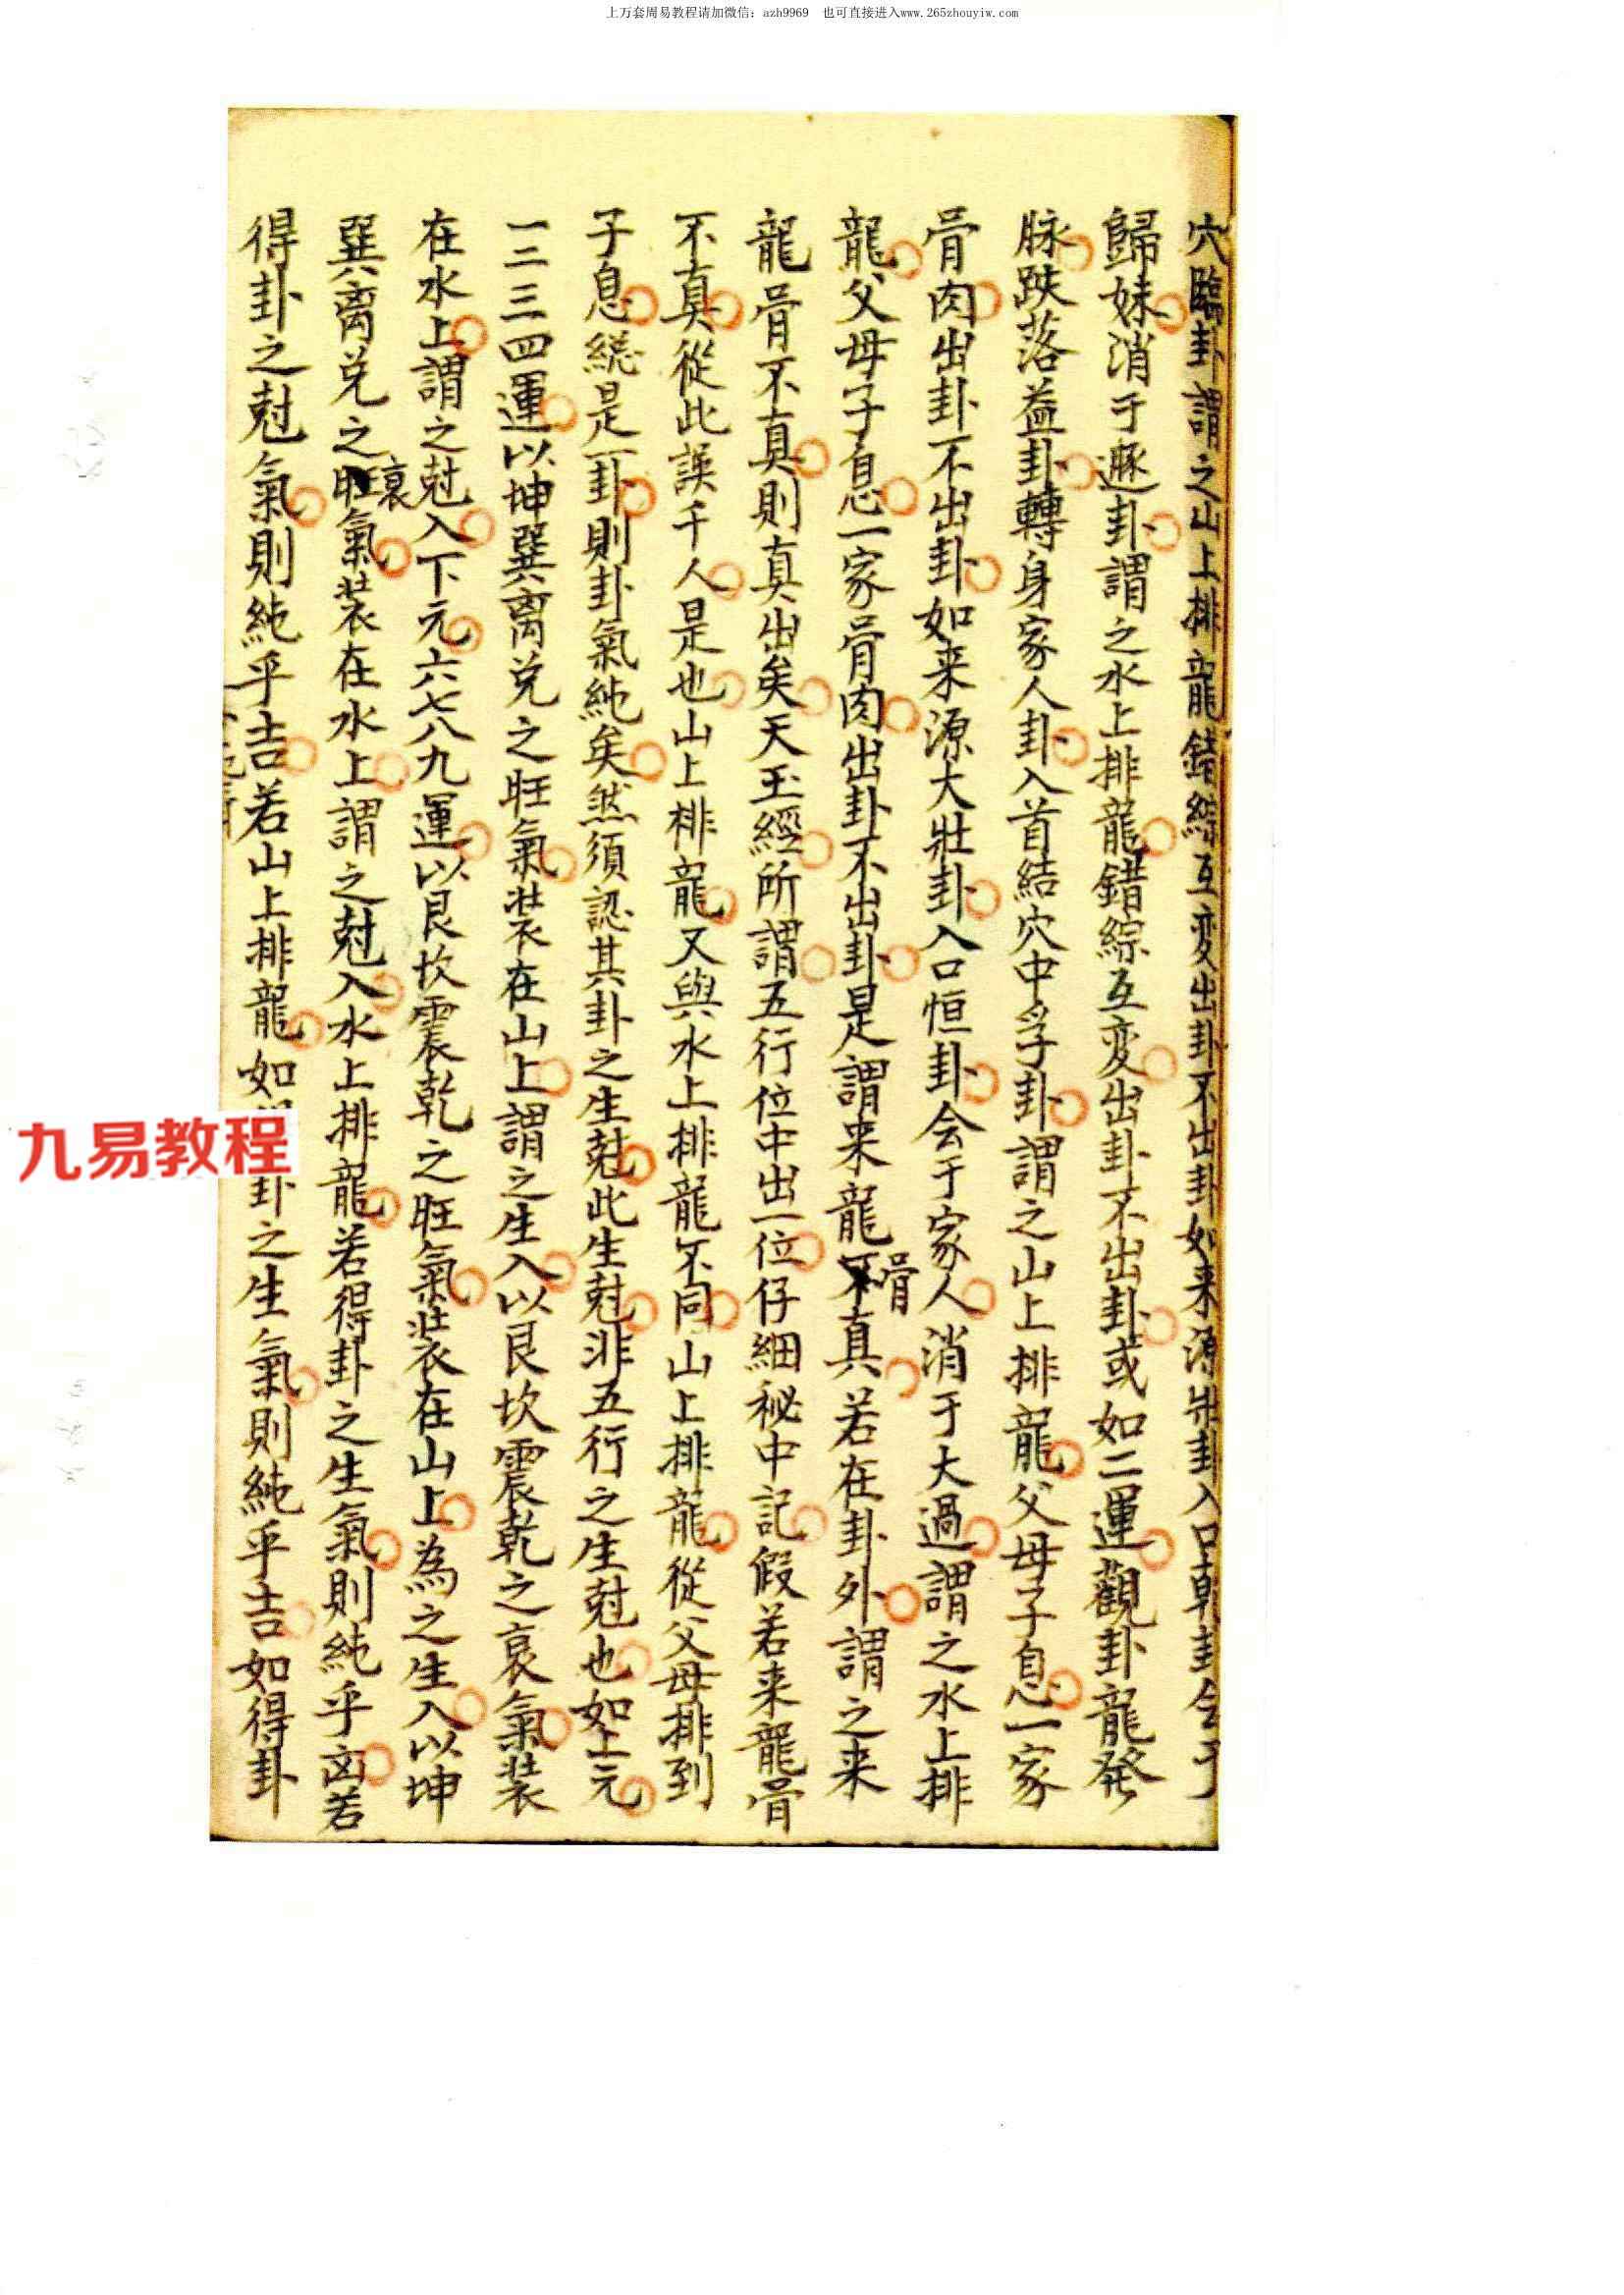 上万套周易教程请加微信：azh9969　也可直接进入www.265zhouyiw.com
穴臨卦謂之山上排龍錯綜互变出卦不出卦如来源壯卦入口卦会于
歸妹消于遯卦謂之水上排龍錯綜互变出卦不出卦或如二運觀卦龍發
脉跌落益卦轉身家人卦入首結穴中孚卦謂之山上排龍父母子息一家
骨肉出卦不出卦如来源大壯卦入口恒卦会于家人消于大過謂之水上排
龍父母子息一家骨肉出卦不出卦是謂来龍骨不真若在卦外謂之来
龍骨不真則真出矣天玉經所謂五行位中出一位仔細秘中記假若来龍骨
不真從此誤千人是也山上排龍又與水上排龍不同山上排龍從父母排到
子息総是一卦則卦氣純矣然須認其卦之生尅此生尅非五行之生尅也如上元
一二三四運以坤巽离兑之旺氣装在山上謂之生入以艮坎震乾之衰氣装
在水上謂之尅入下元六七八九運以艮坎震乾之旺氣装在山上為之生入以坤
巽离兑之衰氣装在水上謂之尅入水上排龍若得卦之生氣則純乎凶若
得卦之尅氣則純乎吉若山上排龍如卦之生氣則純乎吉如得卦
九易教程